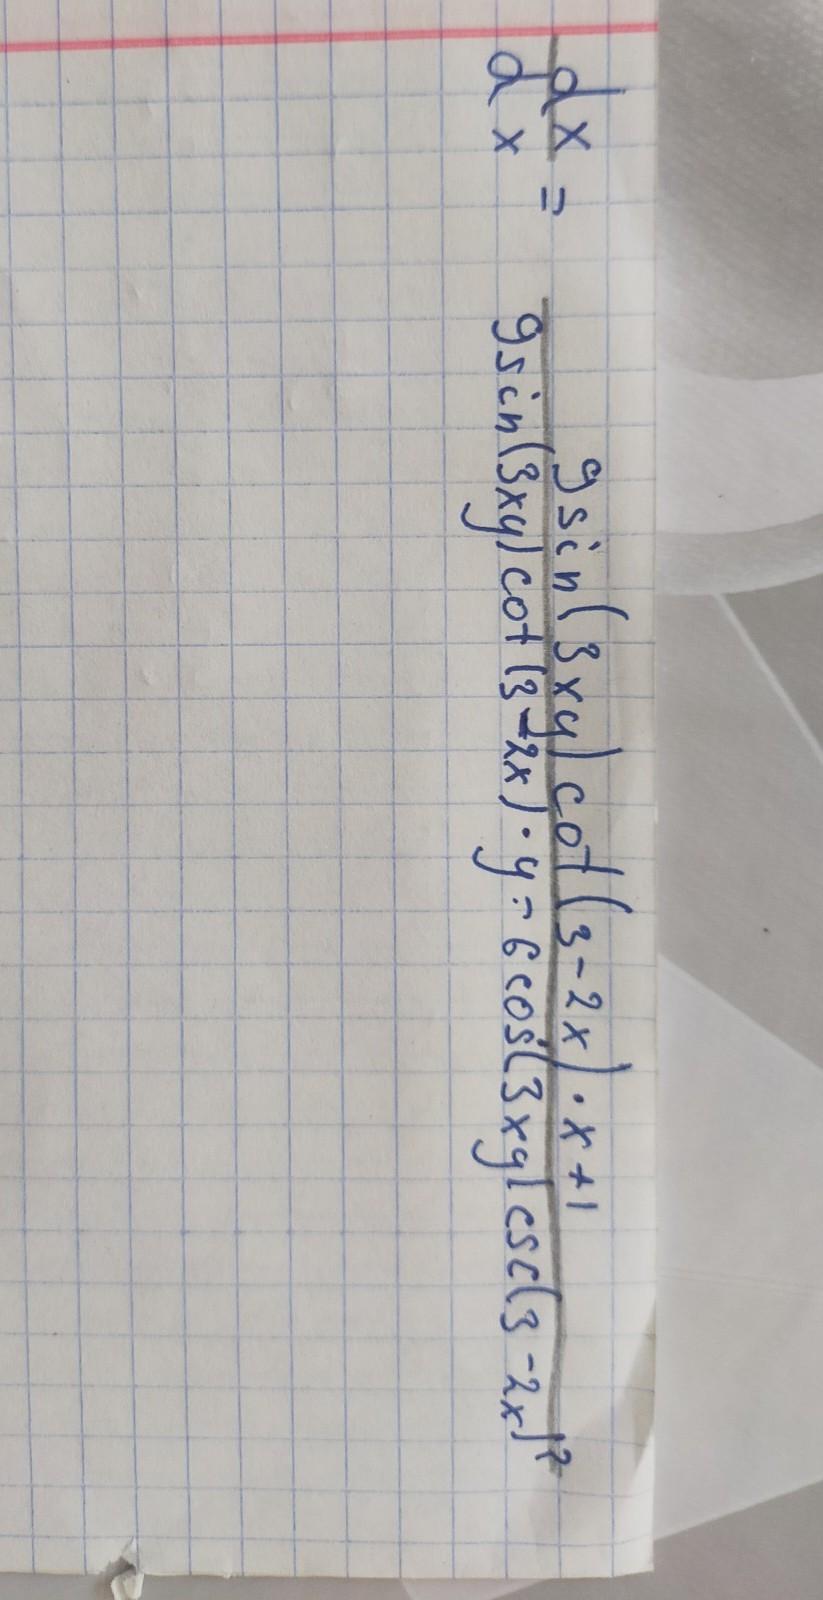 dx/dx = (9sin(3xy)cot(3-2x)·x+1)/(9sin(3xy)cot(3-2x)·y-6cos(3xy)csc(3-2x)²)